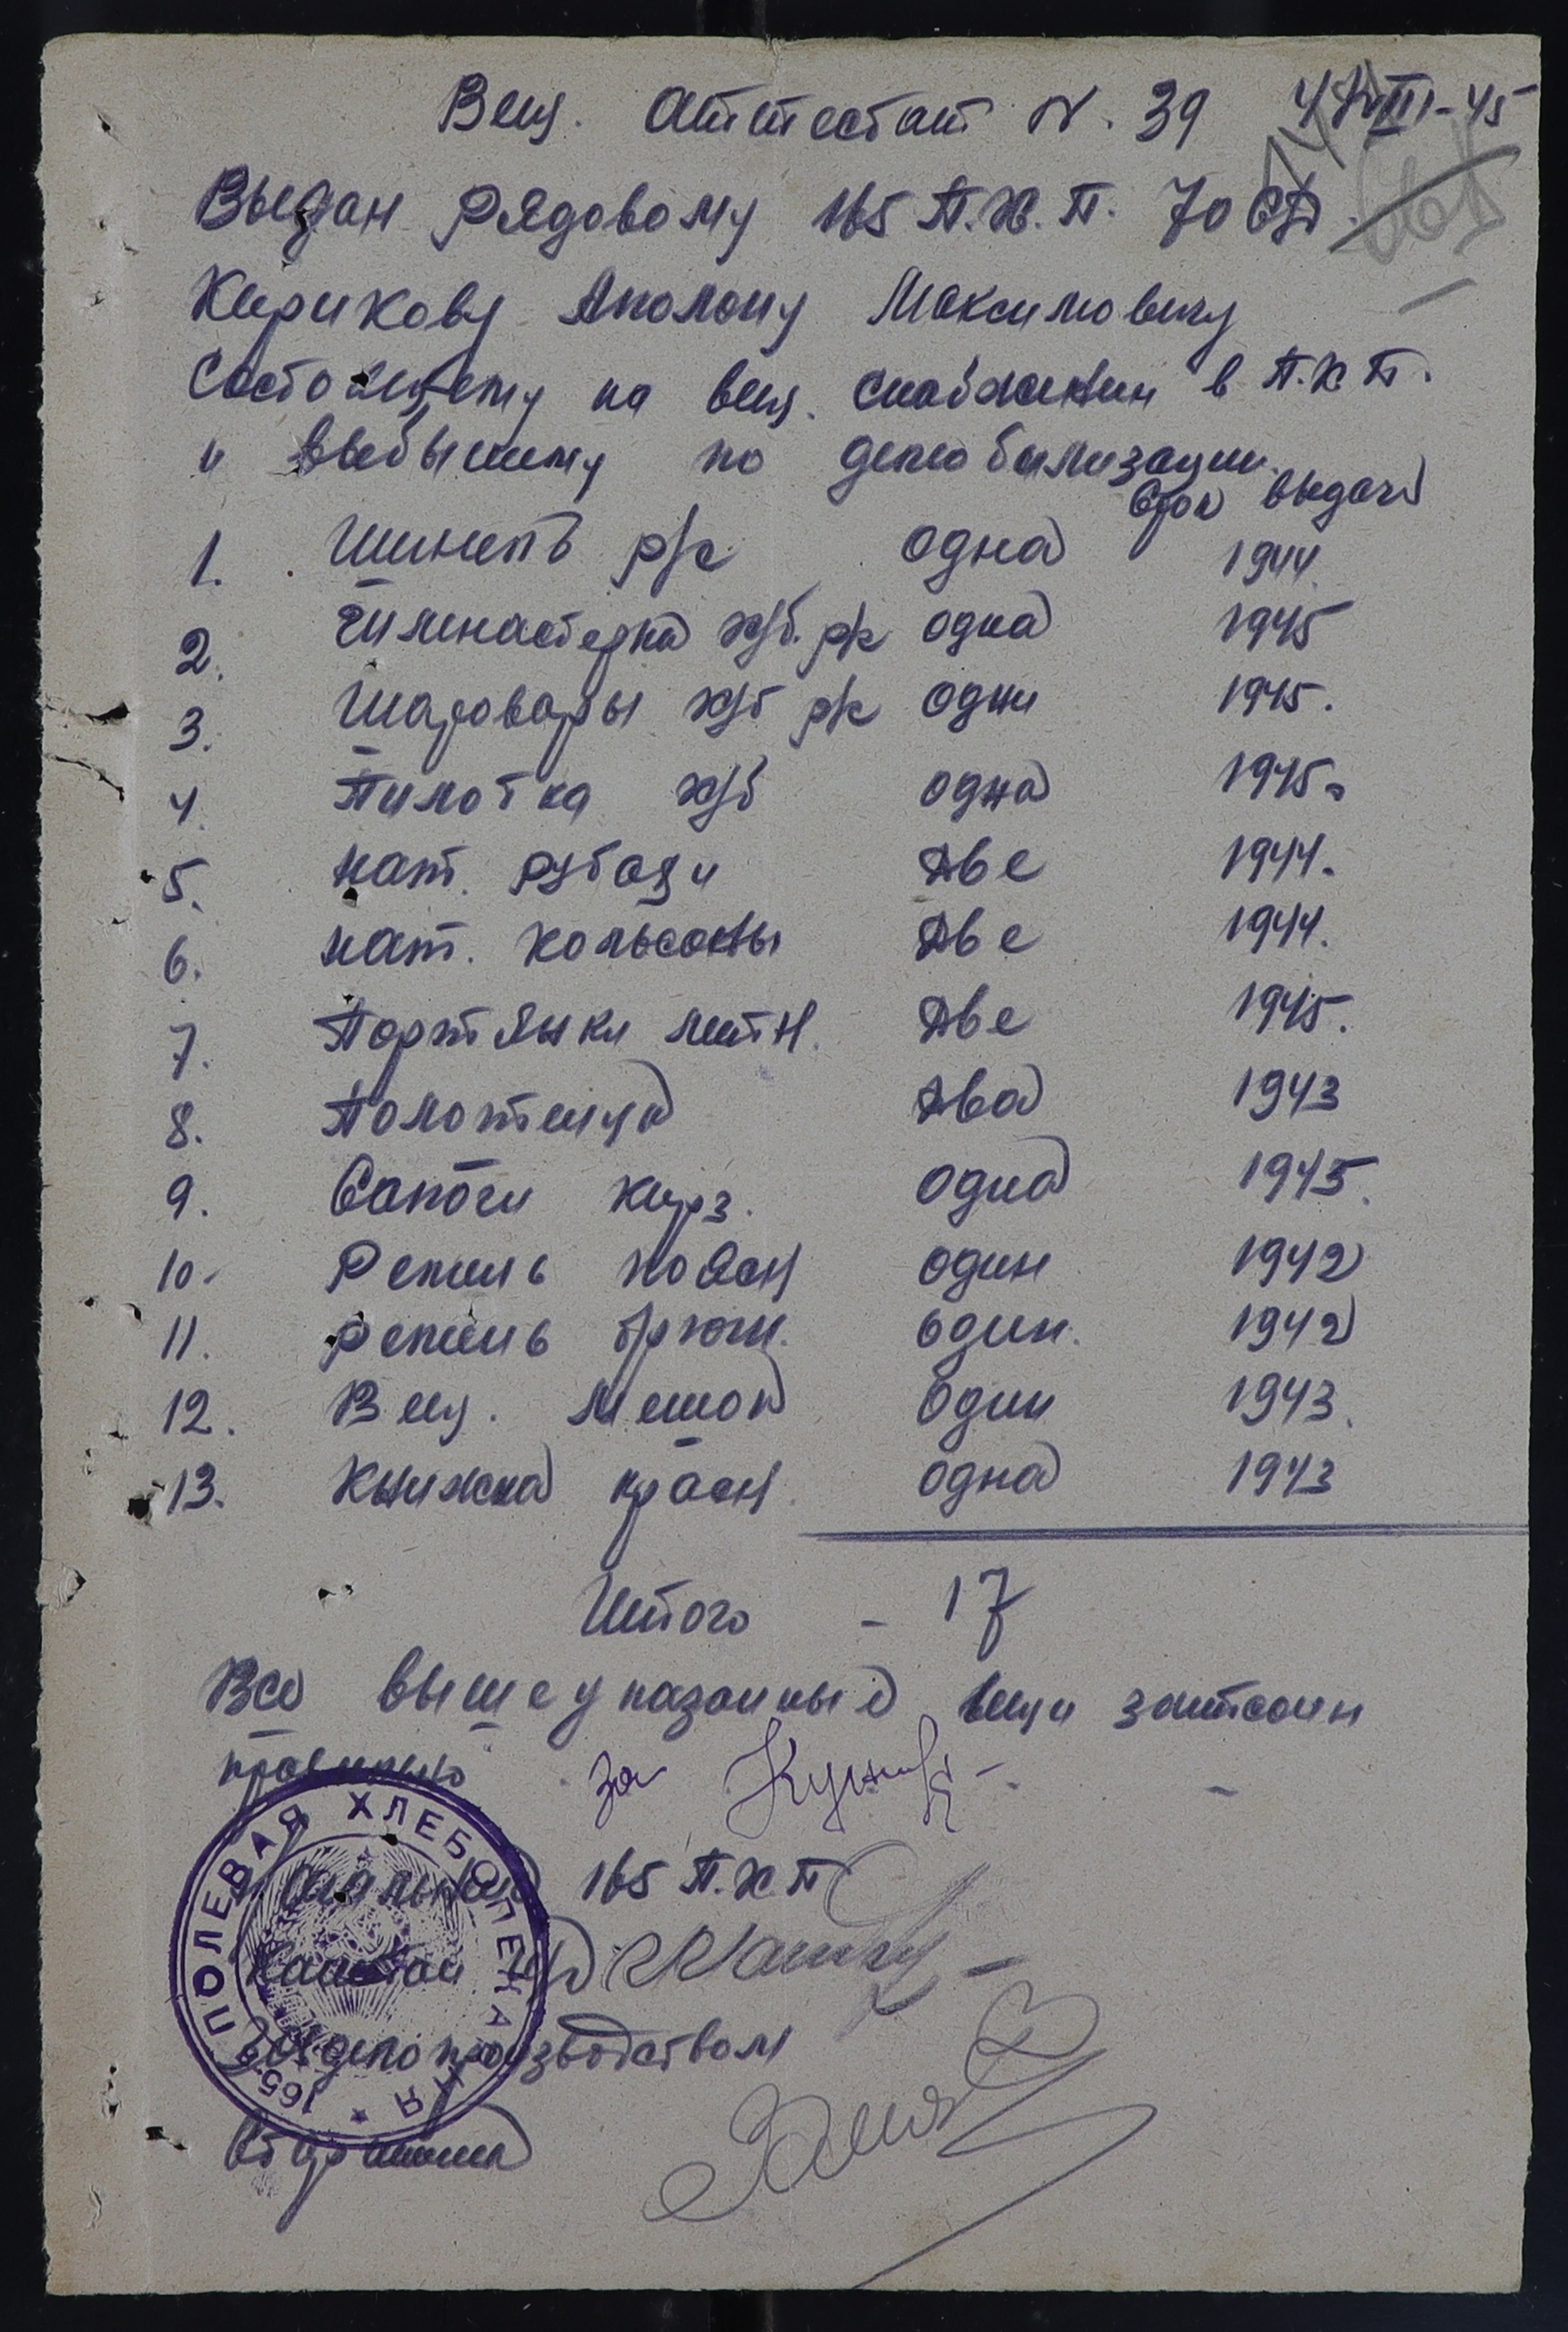 Вещ. Аттестат N. 39
Выдан Рядовому 165 П.Х.П. 70 СД.
Кирикову Аполону Максимовичу
Состоящему на вещ. снабжении в П.Х.П.
и выбывшему по демобилизации.
Срок выдачи
1. Шинель р/с одна 1944.
2. Гимнастерка х/б. р/с одна 1945
3. Шаровары х/б р/с одни 1945.
4. Пилотка х/б одна 1945.
5. нат. рубахи Две 1944.
6. нат. кольсоны Две 1944.
7. Портянки летн. Две 1945.
8. Полотенца Два 1943
9. Сапоги кирз. одна 1945.
10. Ремень поясн один 1942
11. ремень брючн. один. 1942
12. Вещ. мешок один 1943.
13. Книжка красн. одна 1943
Итого - 17
Все вышеуказанные вещи записаны
правильно за
Начальник 165 П.Х.П
Капитан
Делопроизводством
Старшина
ПОЛЕВАЯ ХЛЕБОПЕКАРНЯ ★ 165